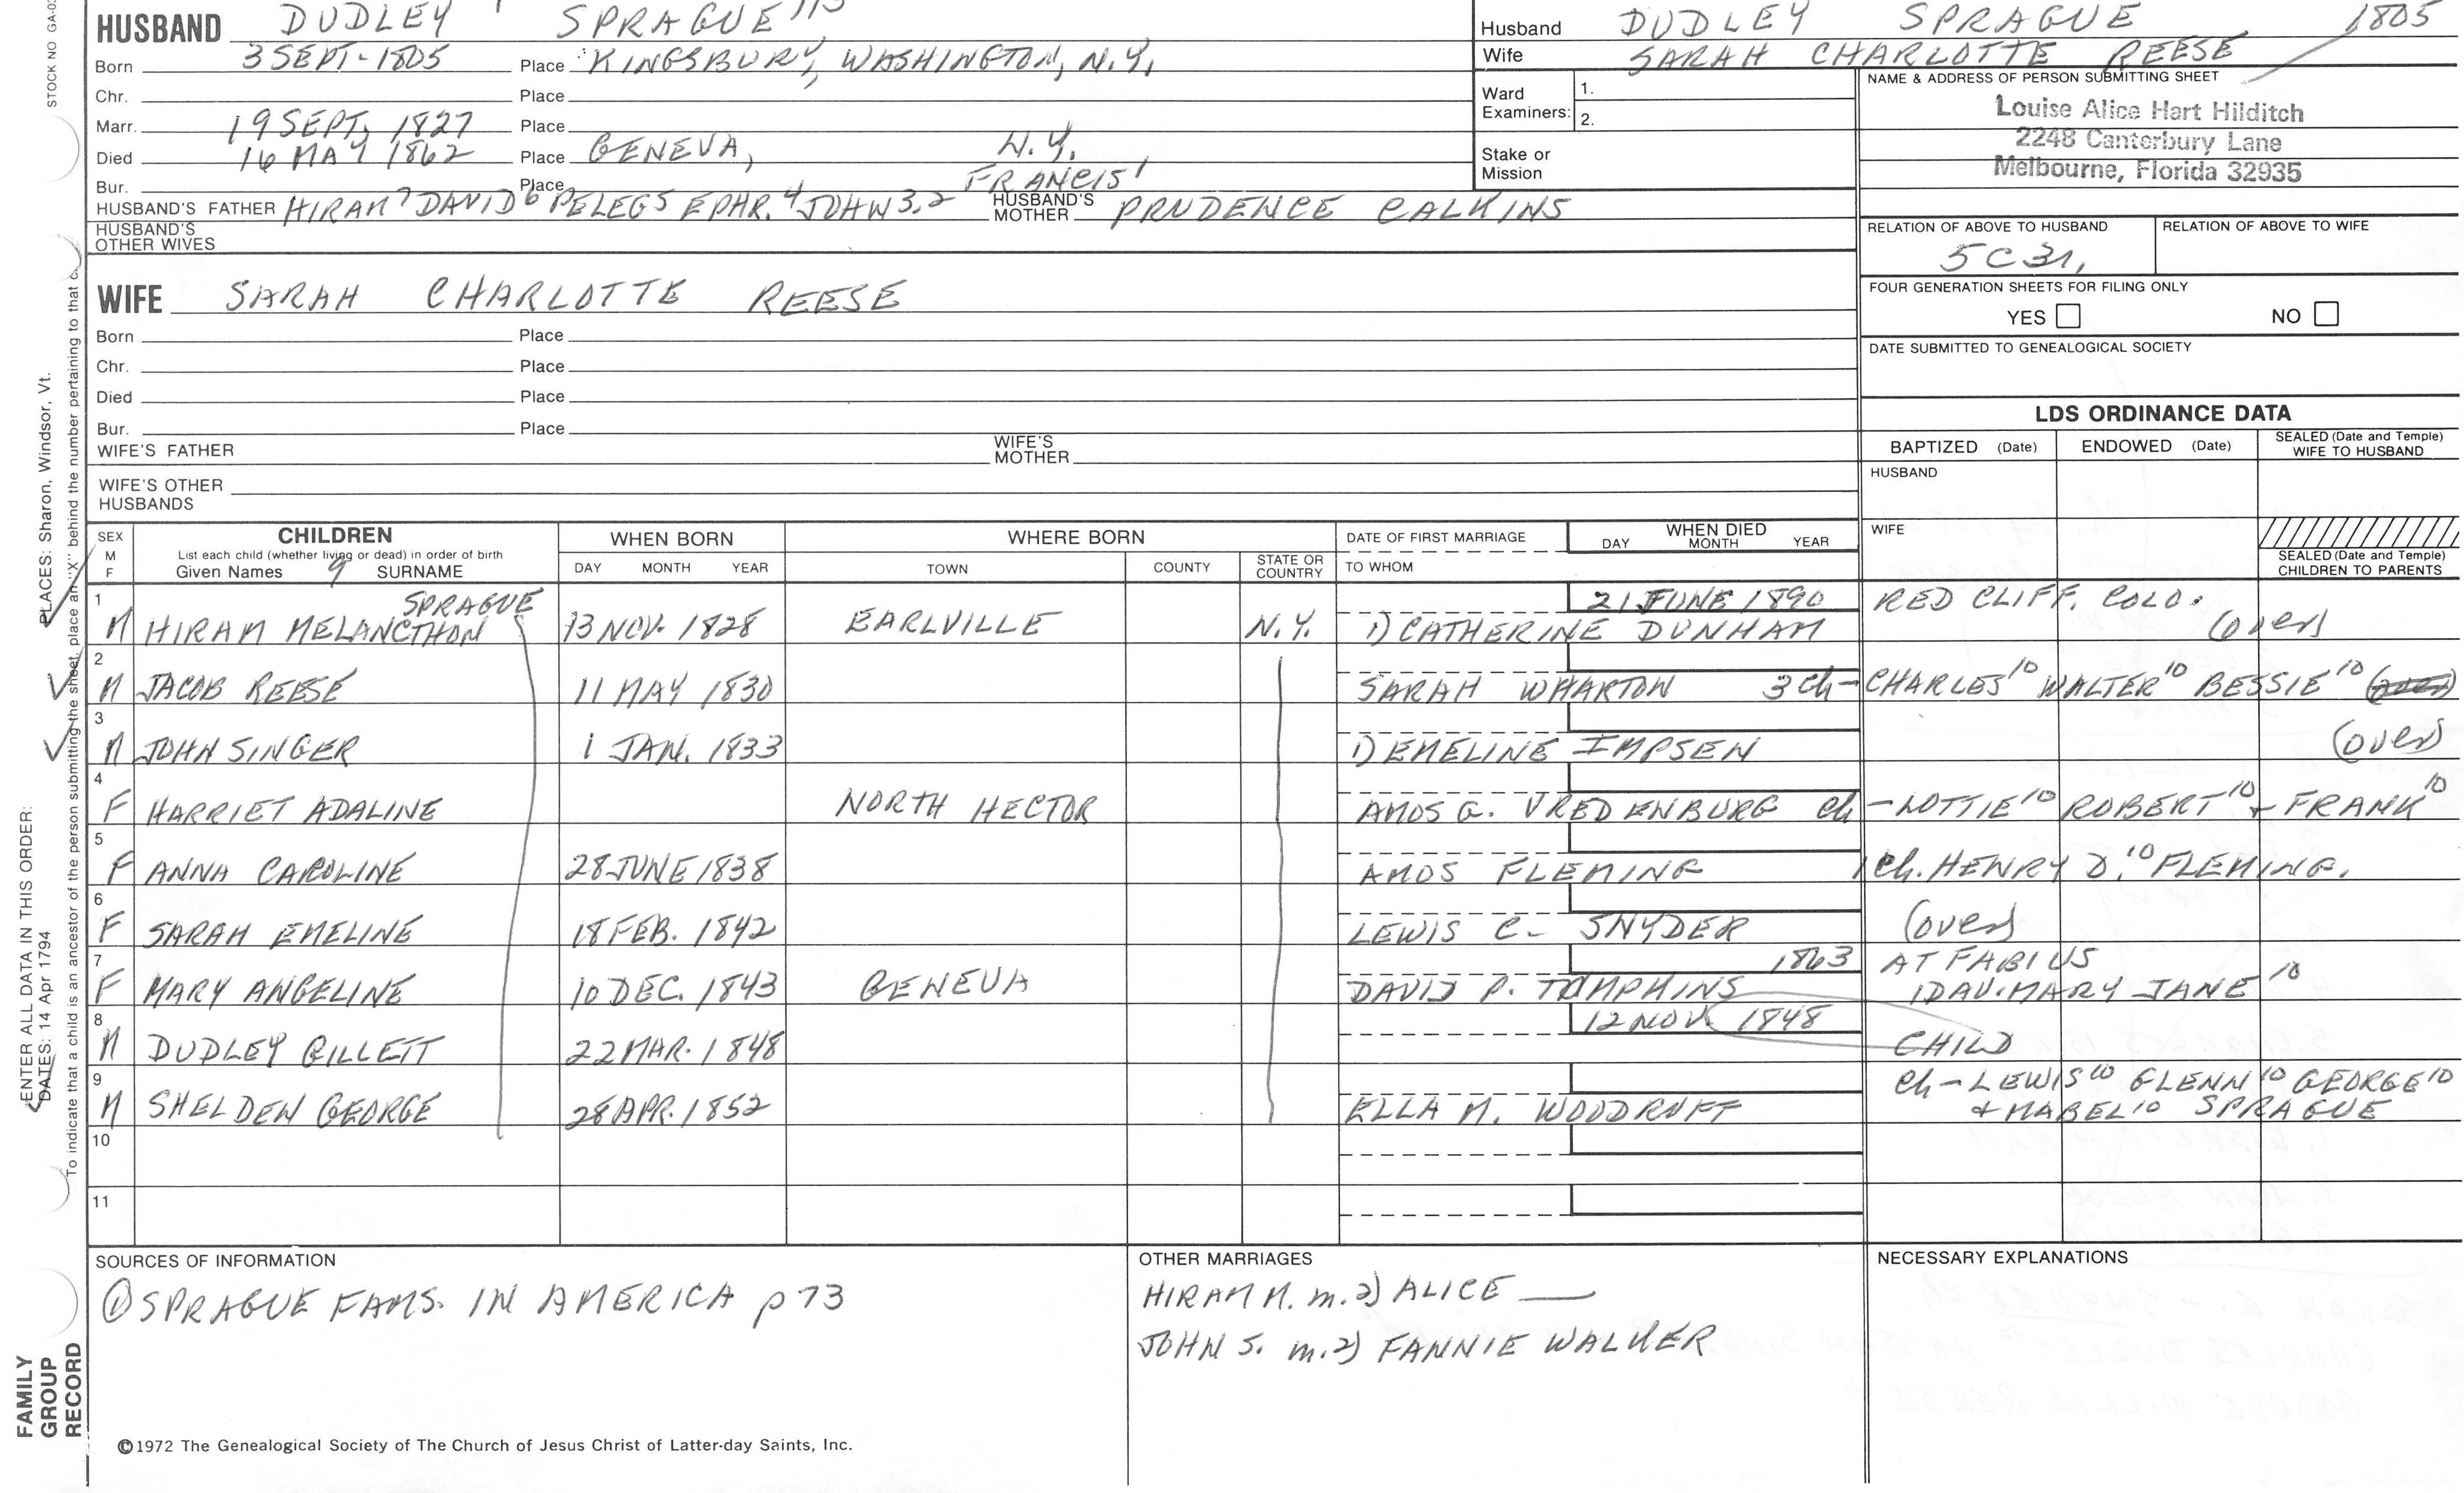 HUSBAND DUDLEY SPRAGUE
Born 3 SEPT-1805 Place KINGSBURY, WASHINGTON, N.Y.
Chr. Place
Marr. 19 SEPT, 1827 Place
Died 16 MAY 1862 Place GENEVA, N.Y.
Bur. Place FRANCIS 1
HUSBAND'S FATHER HIRAM 7 DAVID 6 PELEG 5 EPHR. 4 JOHN 3,2 HUSBAND'S MOTHER PRUDENCE CALKINS
HUSBAND'S OTHER WIVES
Husband DUDLEY SPRAGUE 1805
Wife SARAH CHARLOTTE REESE
Ward Examiners: 1.
2.
Stake or Mission
NAME & ADDRESS OF PERSON SUBMITTING SHEET
Louise Alice Hart Hilditch
2248 Canterbury Lane
Melbourne, Florida 32935
RELATION OF ABOVE TO HUSBAND RELATION OF ABOVE TO WIFE
5C3r,
FOUR GENERATION SHEETS FOR FILING ONLY
YES NO
DATE SUBMITTED TO GENEALOGICAL SOCIETY
WIFE SARAH CHARLOTTE REESE
Born Place
Chr. Place
Died Place
Bur. Place
WIFE'S FATHER WIFE'S MOTHER
WIFE'S OTHER HUSBANDS
LDS ORDINANCE DATA
BAPTIZED (Date) ENDOWED (Date) SEALED (Date and Temple) WIFE TO HUSBAND
HUSBAND
WIFE
SEALED (Date and Temple) CHILDREN TO PARENTS
SEX M F CHILDREN WHEN BORN WHERE BORN DATE OF FIRST MARRIAGE WHEN DIED
List each child (whether living or dead) in order of birth
Given Names 9 SURNAME DAY MONTH YEAR TOWN COUNTY STATE OR COUNTRY TO WHOM DAY MONTH YEAR
1 SPRAGUE 21 JUNE 1890 RED CLIFF, COLO.
M HIRAM MELANCTHON 13 NOV. 1828 EARLVILLE N.Y. 1) CATHERINE DUNHAM (over)
2
M JACOB REESE 11 MAY 1830 SARAH WHARTON 3 ch- CHARLES 10 WALTER 10 BESSIE 10
3
M JOHN SINGER 1 JAN. 1833 1) EMELINE IMPSEN (over)
4
F HARRIET ADALINE NORTH HECTOR AMOS G. VREDENBURG ch - LOTTIE 10 ROBERT 10 + FRANK 10
5
F ANNA CAROLINE 28 JUNE 1838 AMOS FLEMING 1 ch. HENRY D. 10 FLEMING.
6
F SARAH EMELINE 18 FEB. 1842 LEWIS C. SNYDER (over)
7 1863 AT FABIUS
F MARY ANGELINE 10 DEC. 1843 GENEVA DAVID P. TOMPKINS 1 DAU. MARY JANE 10
8 12 NOV. 1848
M DUDLEY GILLETT 22 MAR. 1848 CHILD
9 Ch - LEWIS 10 GLENN 10 GEORGE 10
M SHELDEN GEORGE 28 APR. 1852 ELLA M. WOODRUFF + MABEL 10 SPRAGUE
10
11
SOURCES OF INFORMATION
① SPRAGUE FAMS. IN AMERICA p 73
OTHER MARRIAGES
HIRAM M. m. 2) ALICE ___
JOHN S. m. 2) FANNIE WALKER
NECESSARY EXPLANATIONS
©1972 The Genealogical Society of The Church of Jesus Christ of Latter-day Saints, Inc.
STOCK NO GA-03
ENTER ALL DATA IN THIS ORDER:
DATES: 14 Apr 1794 PLACES: Sharon, Windsor, Vt.
To indicate that a child is an ancestor of the person submitting the sheet, place an "X" behind the number pertaining to that
FAMILY
GROUP
RECORD